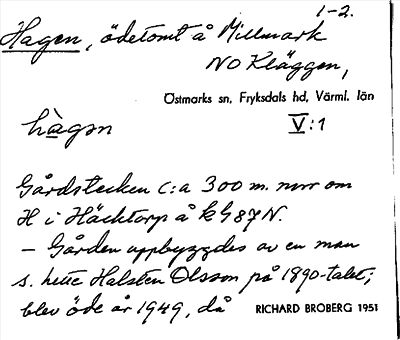 1-2.
Hagen, ödetomt å Millmark
NO Kläggen,
Östmarks sn, Fryksdals hd, Värml. län
hàgən
V:1
Gårdstecken c:a 300 m. nnv om
H i Häcktorp å kG87N.
– Gården uppbyggdes av en man
s. hette Halsten Olsson på 1890-talet;
blev öde år 1949, då
RICHARD BROBERG 1951